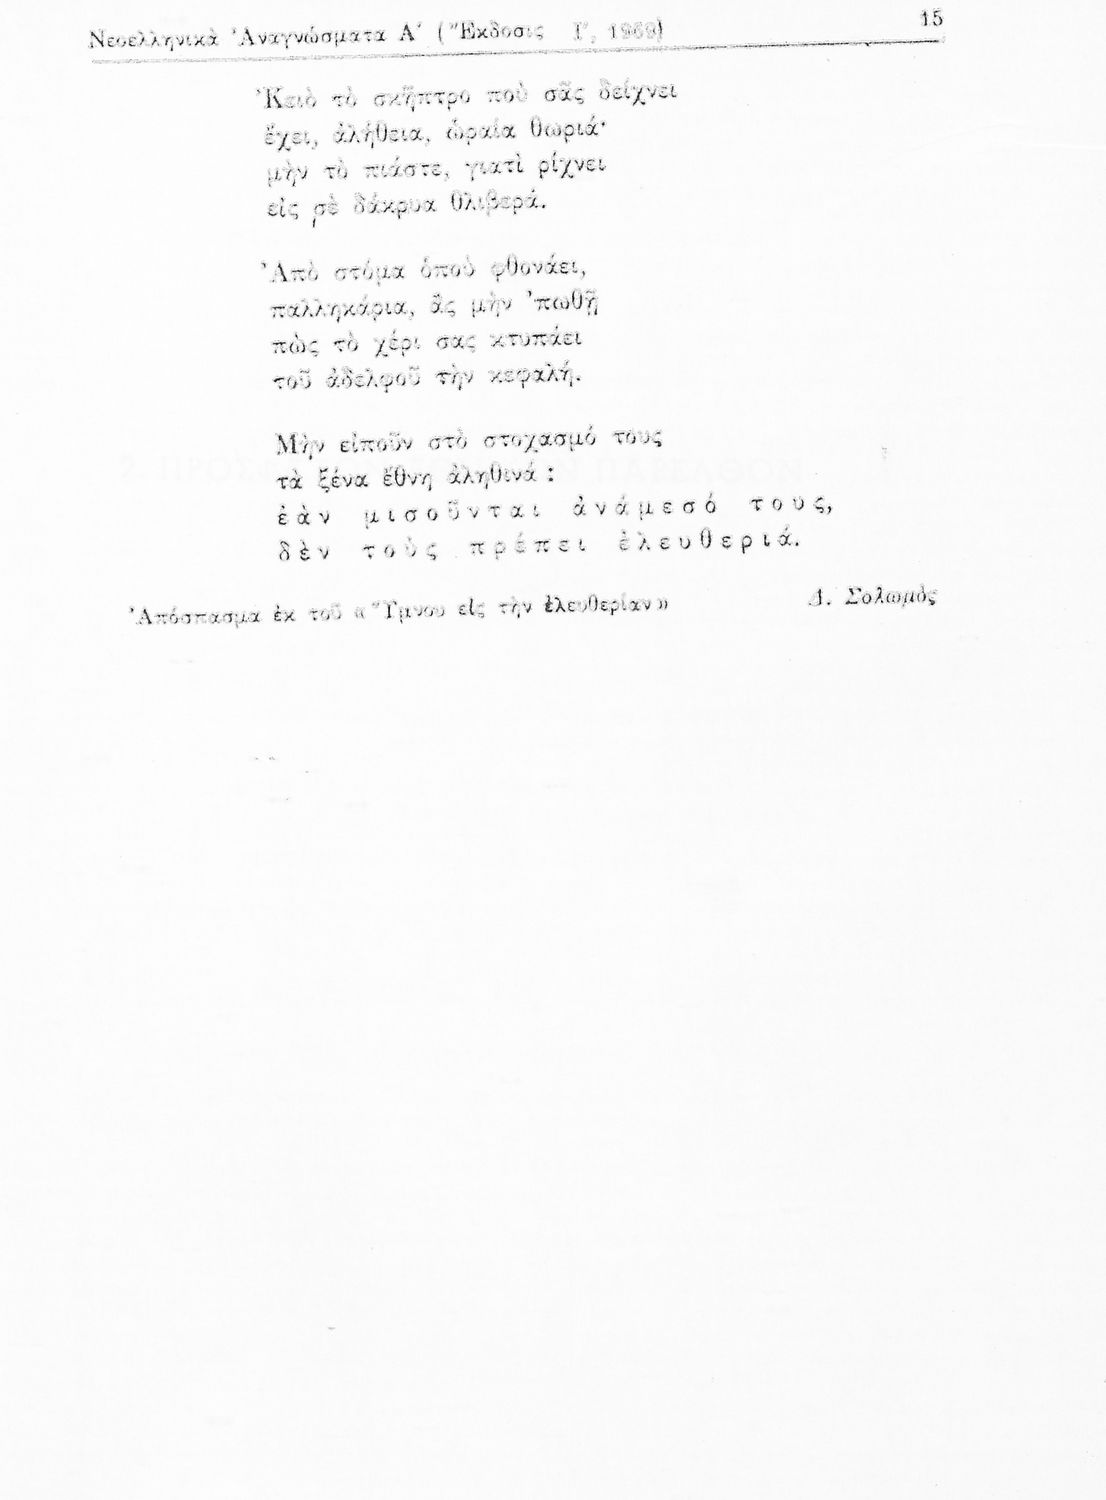 Νεοελληνικὰ Ἀναγνώσματα Α΄ (Ἔκδοσις Ι΄, 1969)
15
Ἐκειὸ τὸ σκῆπτρο ποὺ σᾶς δείχνει
ἔχει, ἀλήθεια, ὡραία θωριά·
μὴν τὸ πιάστε, γιατὶ ρίχνει
εἰς σὲ δάκρυα θλιβερά.
Ἀπὸ στόμα ὁποὺ φθονάει,
παλληκάρια, ἂς μὴν ᾿πωθῇ
πὼς τὸ χέρι σας κτυπάει
τοῦ ἀδελφοῦ τὴν κεφαλή.
Μὴν εἰποῦν στὸ στοχασμό τους
τὰ ξένα ἔθνη ἀληθινά :
ἐὰν μισοῦνται ἀνάμεσό τους,
δὲν τοὺς πρέπει ἐλευθεριά.
Ἀπόσπασμα ἐκ τοῦ «Ὕμνου εἰς τὴν ἐλευθερίαν»
Δ. Σολωμὸς